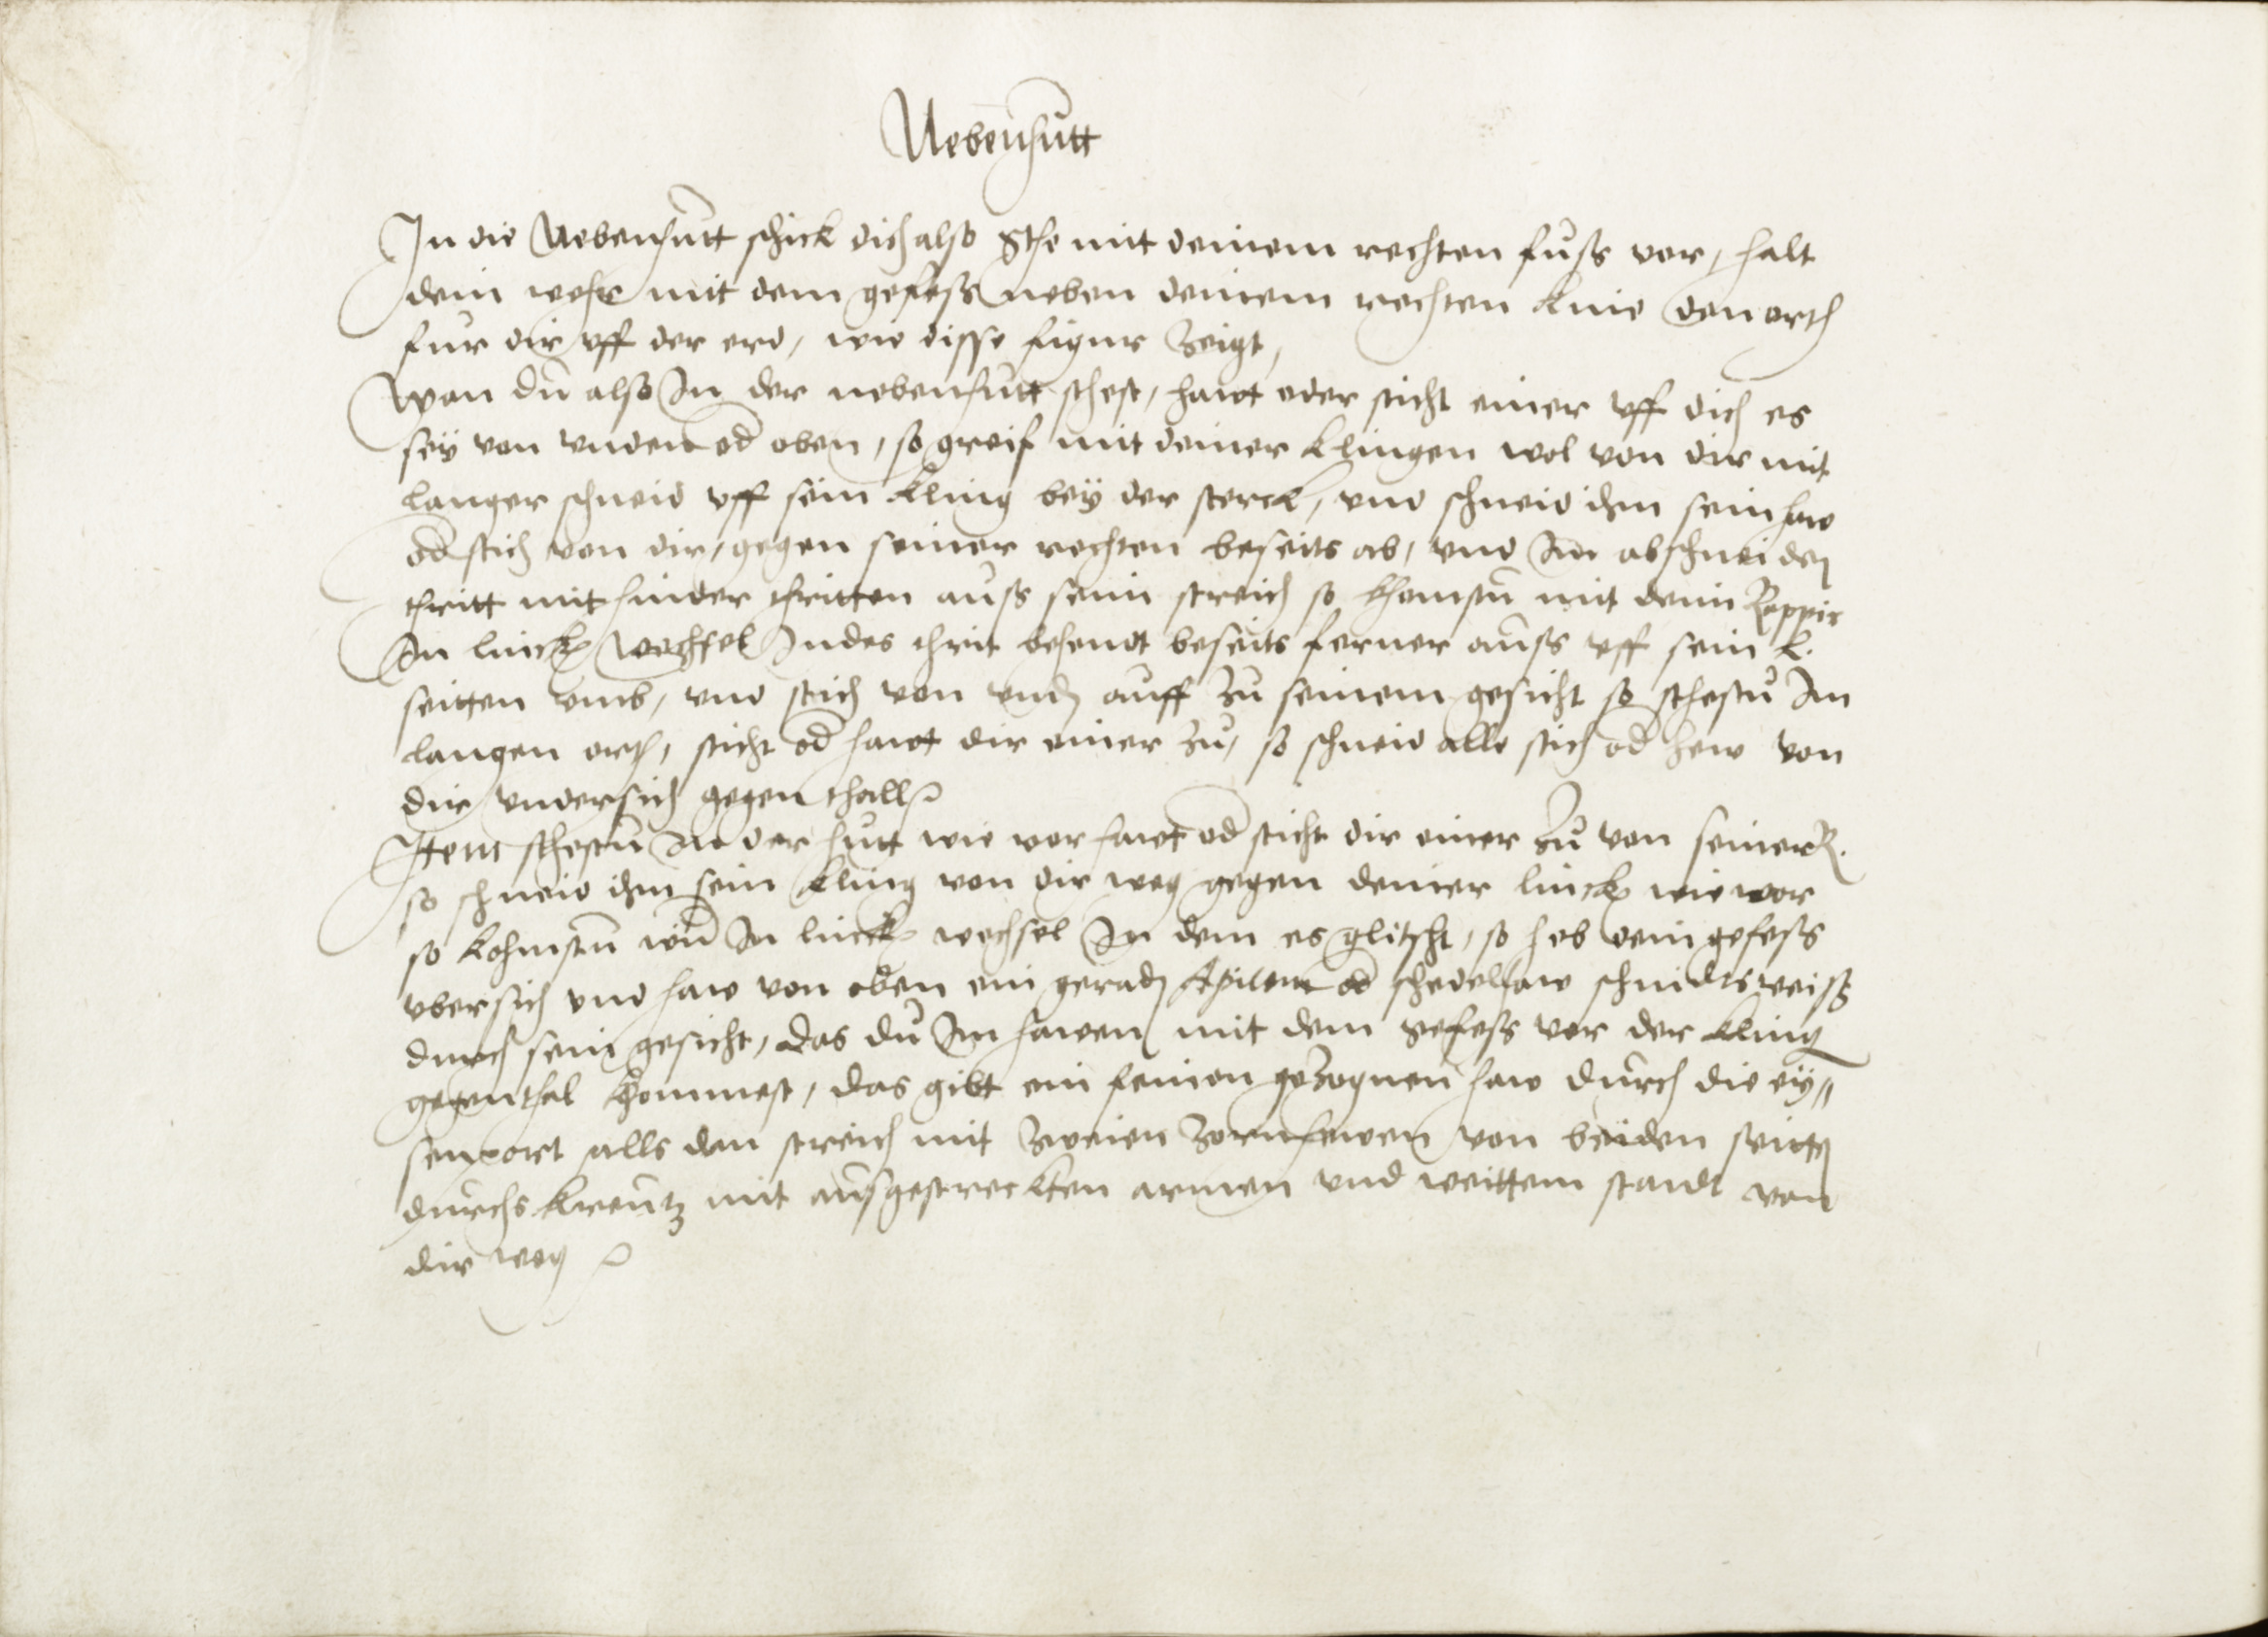 Nebenhutt
In die Nebenhutt schick dich also Sthe mit deinem rechten fuß vor, halt
dein wehr mit dem gefeß neben deinem rechten knie den orth
fur dir vff der erd, wie disse figur zeigt,
Wan du also In der nebenhutt sthest, hawt oder sticht einer vff dich es
sey von vnden od oben, so greif mit deiner klingen wol von dir mit
langer schneid vff sein kling bey der sterck, vnd schneid ihm sein haw
od stich von dir, gegen seiner rechten beseits ab, vnd Im abschneiden
thritt mit hinder thritten auß seim streich so khomstu mit deim Rappir
In linck wechsel Indes thrit behendt beseits ferner auß vff sein L.
seitten vmb, vnd stich von vnden auff zu seinem gesicht so sthestu Im
langen orth, sticht od hawt dir einer zu, so schneid alle stich od hew von
dir vndersich gegen thall
Item sthestu In der hutt wie vor hawt od sticht dir einer zu von seiner R.
so schneid ihm sein kling von dir weg gegen deiner linck wie vor
so kohmstu in linck wechsel In dem es glitscht, so heb dein gefeß
vbersich vnd haw von oben ein geraden od schedelhaw schnidtsweiß
durch sein gesicht, das du Im hawen mit dem gefeß vor der kling
gegenthal khommest, das gibt ein feinen gezognen haw durch die ey„
senport alls dan streich mit zweien zornhewen von beiden seitten
durchs kreutz mit ausgestreckten armen vnd weittem standt von
dir weg